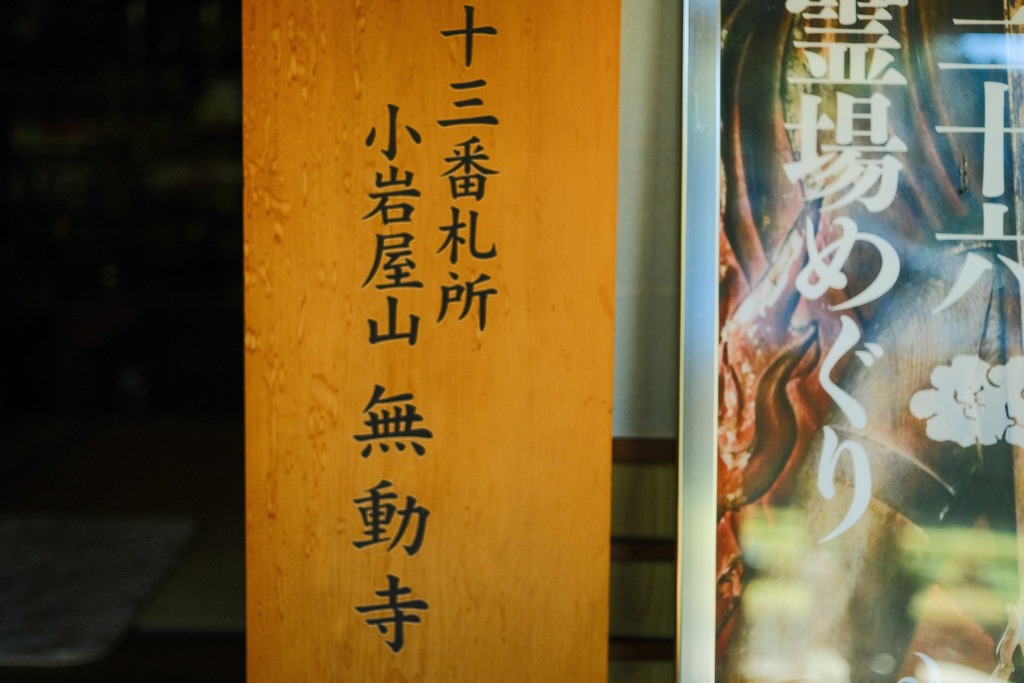 十三番札所
小岩屋山 無動寺
三十六
霊場めぐり